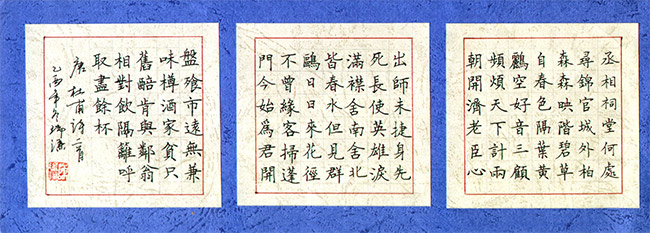 丞相祠堂何處
尋錦官城外柏
森森映階碧草
自春色隔葉黃
鸝空好音三顧
頻煩天下計兩
朝開濟老臣心
出師未捷身先
死長使英雄淚
滿襟舍南舍北
皆春水但見群
鷗日日來花徑
不曾緣客掃蓬
門今始爲君開
盤飧市遠無兼
味樽酒家貧只
舊醅肯與鄰翁
相對飲隔籬呼
取盡餘杯
唐 杜甫詩二首
乙酉年冬